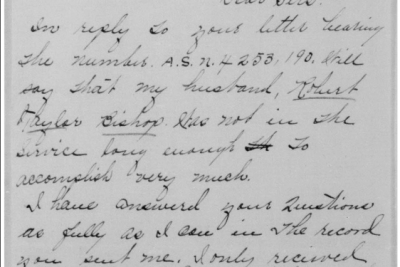 Dear Sirs.
In reply to your letter bearing
the number. A.S.N. 4253,190. Will
say that my husband, Robert
Taylor Bishop. Was not in the
service long enough to
accomplish very much.
I have answered your Questions
as fully as I can in the record
you sent me. I only recieved,